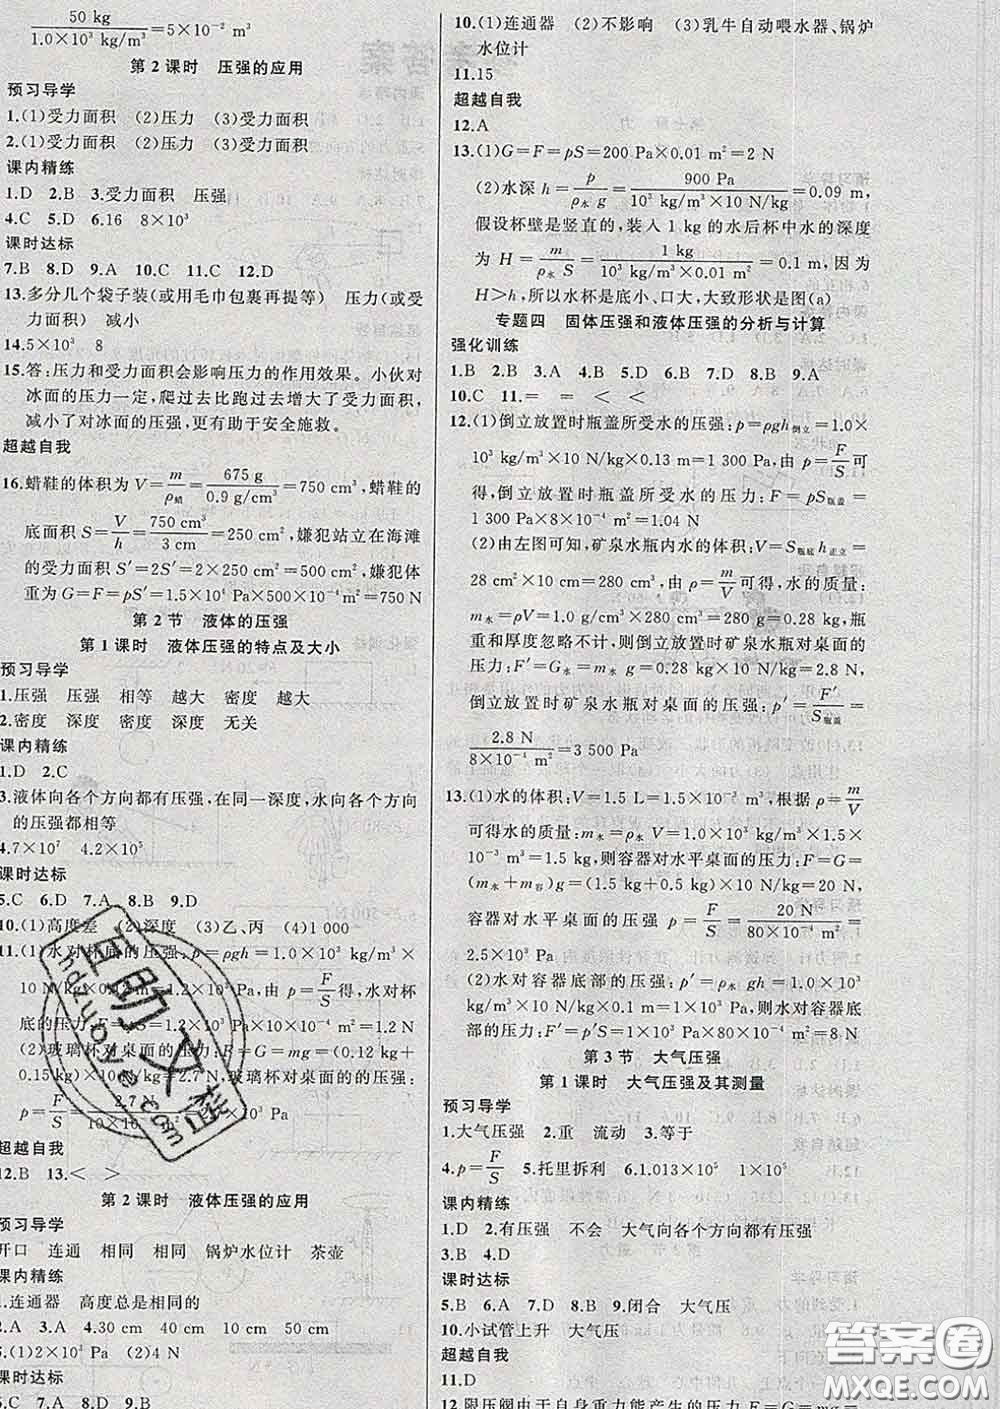 50 kg / 1.0×10³ kg/m³ =5×10⁻² m³
第2课时　压强的应用
预习导学
1.(1)受力面积　(2)压力　(3)受力面积
2.(1)受力面积　(2)压力　(3)受力面积
课内精练
1.D　2.B　3.受力面积　压强
4.C　5.D　6.16　8×10³
课时达标
7.B　8.D　9.A　10.C　11.C　12.D
13.多分几个袋子装(或用毛巾包裹再提等)　压力(或受
力面积)　减小
14.5×10³　8
15.答:压力和受力面积会影响压力的作用效果。小伙对
冰面的压力一定,爬过去比跑过去增大了受力面积,
减小了对冰面的压强,更有助于安全施救。
超越自我
16.蜡鞋的体积为 V=m/ρ蜡=675 g/0.9 g/cm³=750 cm³,蜡鞋的
底面积 S=V/h=750 cm³/3 cm=250 cm²,嫌犯站立在海滩
的受力面积 S′=2S′=2×250 cm²=500 cm²,嫌犯体
重为 G=F=pS′=1.5×10⁴ Pa×500×10⁻⁴ m²=750 N
第2节　液体的压强
第1课时　液体压强的特点及大小
预习导学
1.压强　压强　相等　越大　密度　越大
2.密度　深度　密度　深度　无关
课内精练
1.D　2.C
3.液体向各个方向都有压强,在同一深度,水向各个方向
的压强都相等
4.7×10⁷　4.2×10⁵
课时达标
5.C　6.D　7.A　8.B　9.D
10.(1)高度差　(2)深度　(3)乙、丙　(4)1 000
11.(1)水对杯底的压强:p=ρgh=1.0×10³ kg/m³×
10 N/kg×0.12 m=1.2×10³ Pa,由 p=F/S得,水对杯
底的压力 F=pS=1.2×10³ Pa×10×10⁻⁴ m²=1.2 N
(2)玻璃杯对桌面的压力:F=G=mg=(0.12 kg+
0.15 kg)×10 N/kg=2.7 N,玻璃杯对桌面的压强:
p=F/S=2.7 N/10×10⁻⁴ m²=2.7×10³ Pa
超越自我
12.B　13.<　>
第2课时　液体压强的应用
预习导学
开口　连通　相同　相同　锅炉水位计　茶壶
课内精练
1.连通器　高度总是相同的
2.A　3.A　4.30 cm　40 cm　10 cm　50 cm
5.(1)2×10³ Pa　(2)4 N
课时达标
6.C　7.D　8.D　9.B
10.(1)连通器　(2)不影响　(3)乳牛自动喂水器、锅炉
水位计
11.15
超越自我
12.A
13.(1)G=F=pS=200 Pa×0.01 m²=2 N
(2)水深 h=p/ρ水 g=900 Pa/10³ kg/m³×10 N/kg=0.09 m,
假设杯壁是竖直的,装入 1 kg 的水后杯中水的深度
为 H=m/ρ水 S=1 kg/10³ kg/m³×0.01 m²=0.1 m,因为
H>h,所以水杯是底小、口大,大致形状是图(a)
专题四　固体压强和液体压强的分析与计算
强化训练
1.B　2.B　3.A　4.B　5.B　6.B　7.D　8.B　9.A
10.C　11.=　=　<　<
12.(1)倒立放置时瓶盖所受水的压强:p=ρgh倒立=1.0×
10³ kg/m³×10 N/kg×0.13 m=1 300 Pa,由 p=F/S可
得,倒立放置时瓶盖所受水的压力:F=pS瓶盖=
1 300 Pa×8×10⁻⁴ m²=1.04 N
(2)由左图可知,矿泉水瓶内水的体积:V=S瓶底 h正立=
28 cm²×10 cm=280 cm³,由 ρ=m/V可得,水的质量:
m水=ρV=1.0 g/cm³×280 cm³=280 g=0.28 kg,瓶
重和厚度忽略不计,则倒立放置时矿泉水瓶对桌面的
压力:F′=G水=m水 g=0.28 kg×10 N/kg=2.8 N,
倒立放置时矿泉水瓶对桌面的压强:p′=F′/S瓶盖=
2.8 N/8×10⁻⁴ m²=3 500 Pa
13.(1)水的体积:V=1.5 L=1.5×10⁻³ m³,根据 ρ=m/V
可得水的质量:m水=ρ水 V=1.0×10³ kg/m³×1.5×
10⁻³ m³=1.5 kg;则容器对水平桌面的压力:F=G=
(m水+m容)g=(1.5 kg+0.5 kg)×10 N/kg=20 N,
容器对水平桌面的压强 p=F/S=20 N/80×10⁻⁴ m²=
2.5×10³ Pa
(2)水对容器底部的压强:p′=ρ水 gh=1.0×10³
kg/m³×10 N/kg×0.1 m=1×10³ Pa,则水对容器底
部的压力:F′=p′S=1×10³ Pa×80×10⁻⁴ m²=8 N
第3节　大气压强
第1课时　大气压强及其测量
预习导学
1.大气压强　2.重　流动　3.等于
4.p=F/S　5.托里拆利　6.1.013×10⁵　1×10⁵
课内精练
1.D　2.有压强　不会　大气向各个方向都有压强
3.B　4.D
课时达标
5.B　6.A　7.D　8.B　9.闭合　大气压
10.小试管上升　大气压
超越自我
11.D
12.限压阀由于自身重力能产生的压力 F=G=mg=
答案圈
MXQE.COM